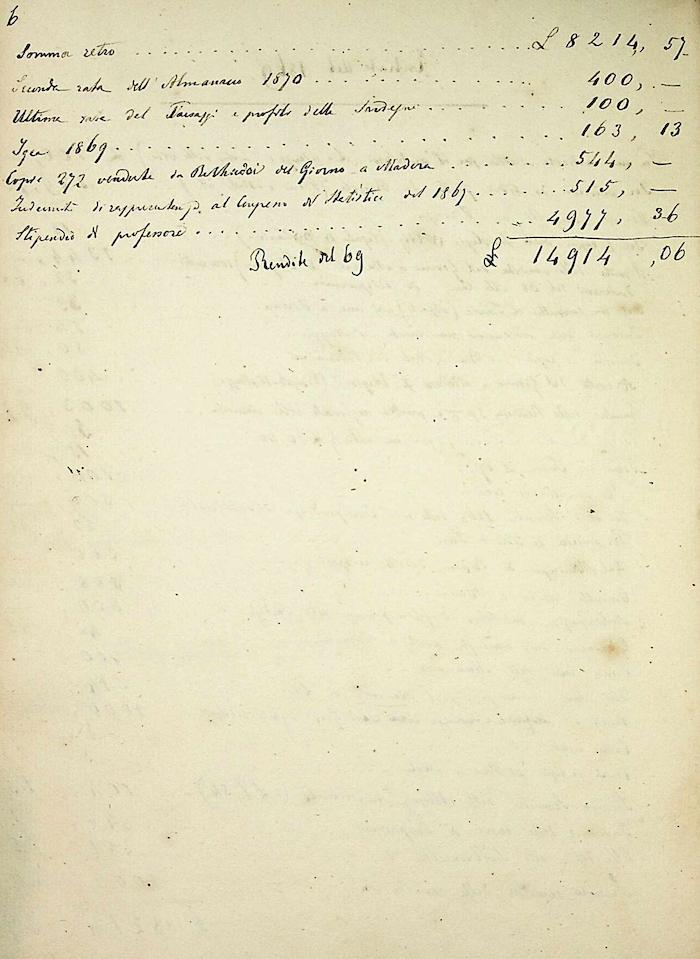 6
Somma retro . . . . . . . . . . £ 8214, 57
Seconda rata dell'Almanacco 1870 . . . . . . 400, —
Ultima rata del Paesaggi e profili della Sardegna . . . . . . 100, —
Igea 1869 . . . . . . . . . . 163, 13
Copie 272 vendute da del Giorno a Madera . . . . . . 544, —
Indennità di rappresentanza al Congresso di Statistica del 1867 . . . . 515, —
Stipendio di professore . . . . . . . . . . 4977, 36
Rendite del 69 £ 14914, 06